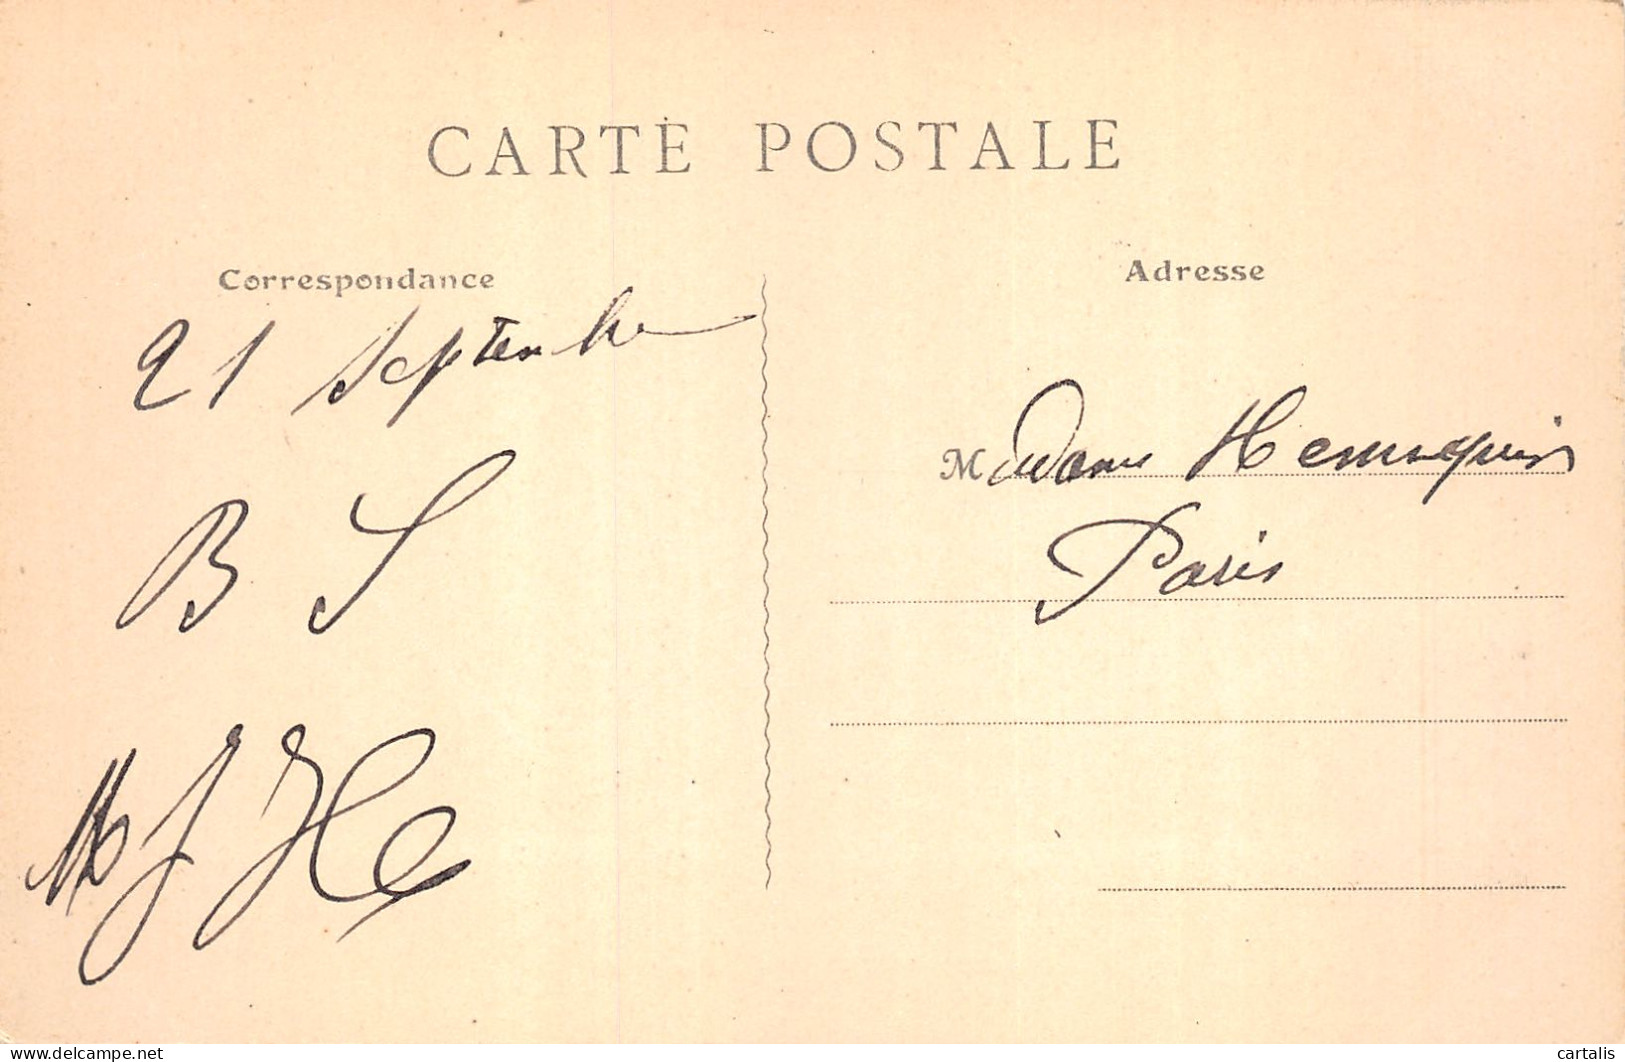 CARTE POSTALE
Correspondance
21 Septembre
B S
Adresse
Madame Hennequin
Paris
delcampe.net
cartalis